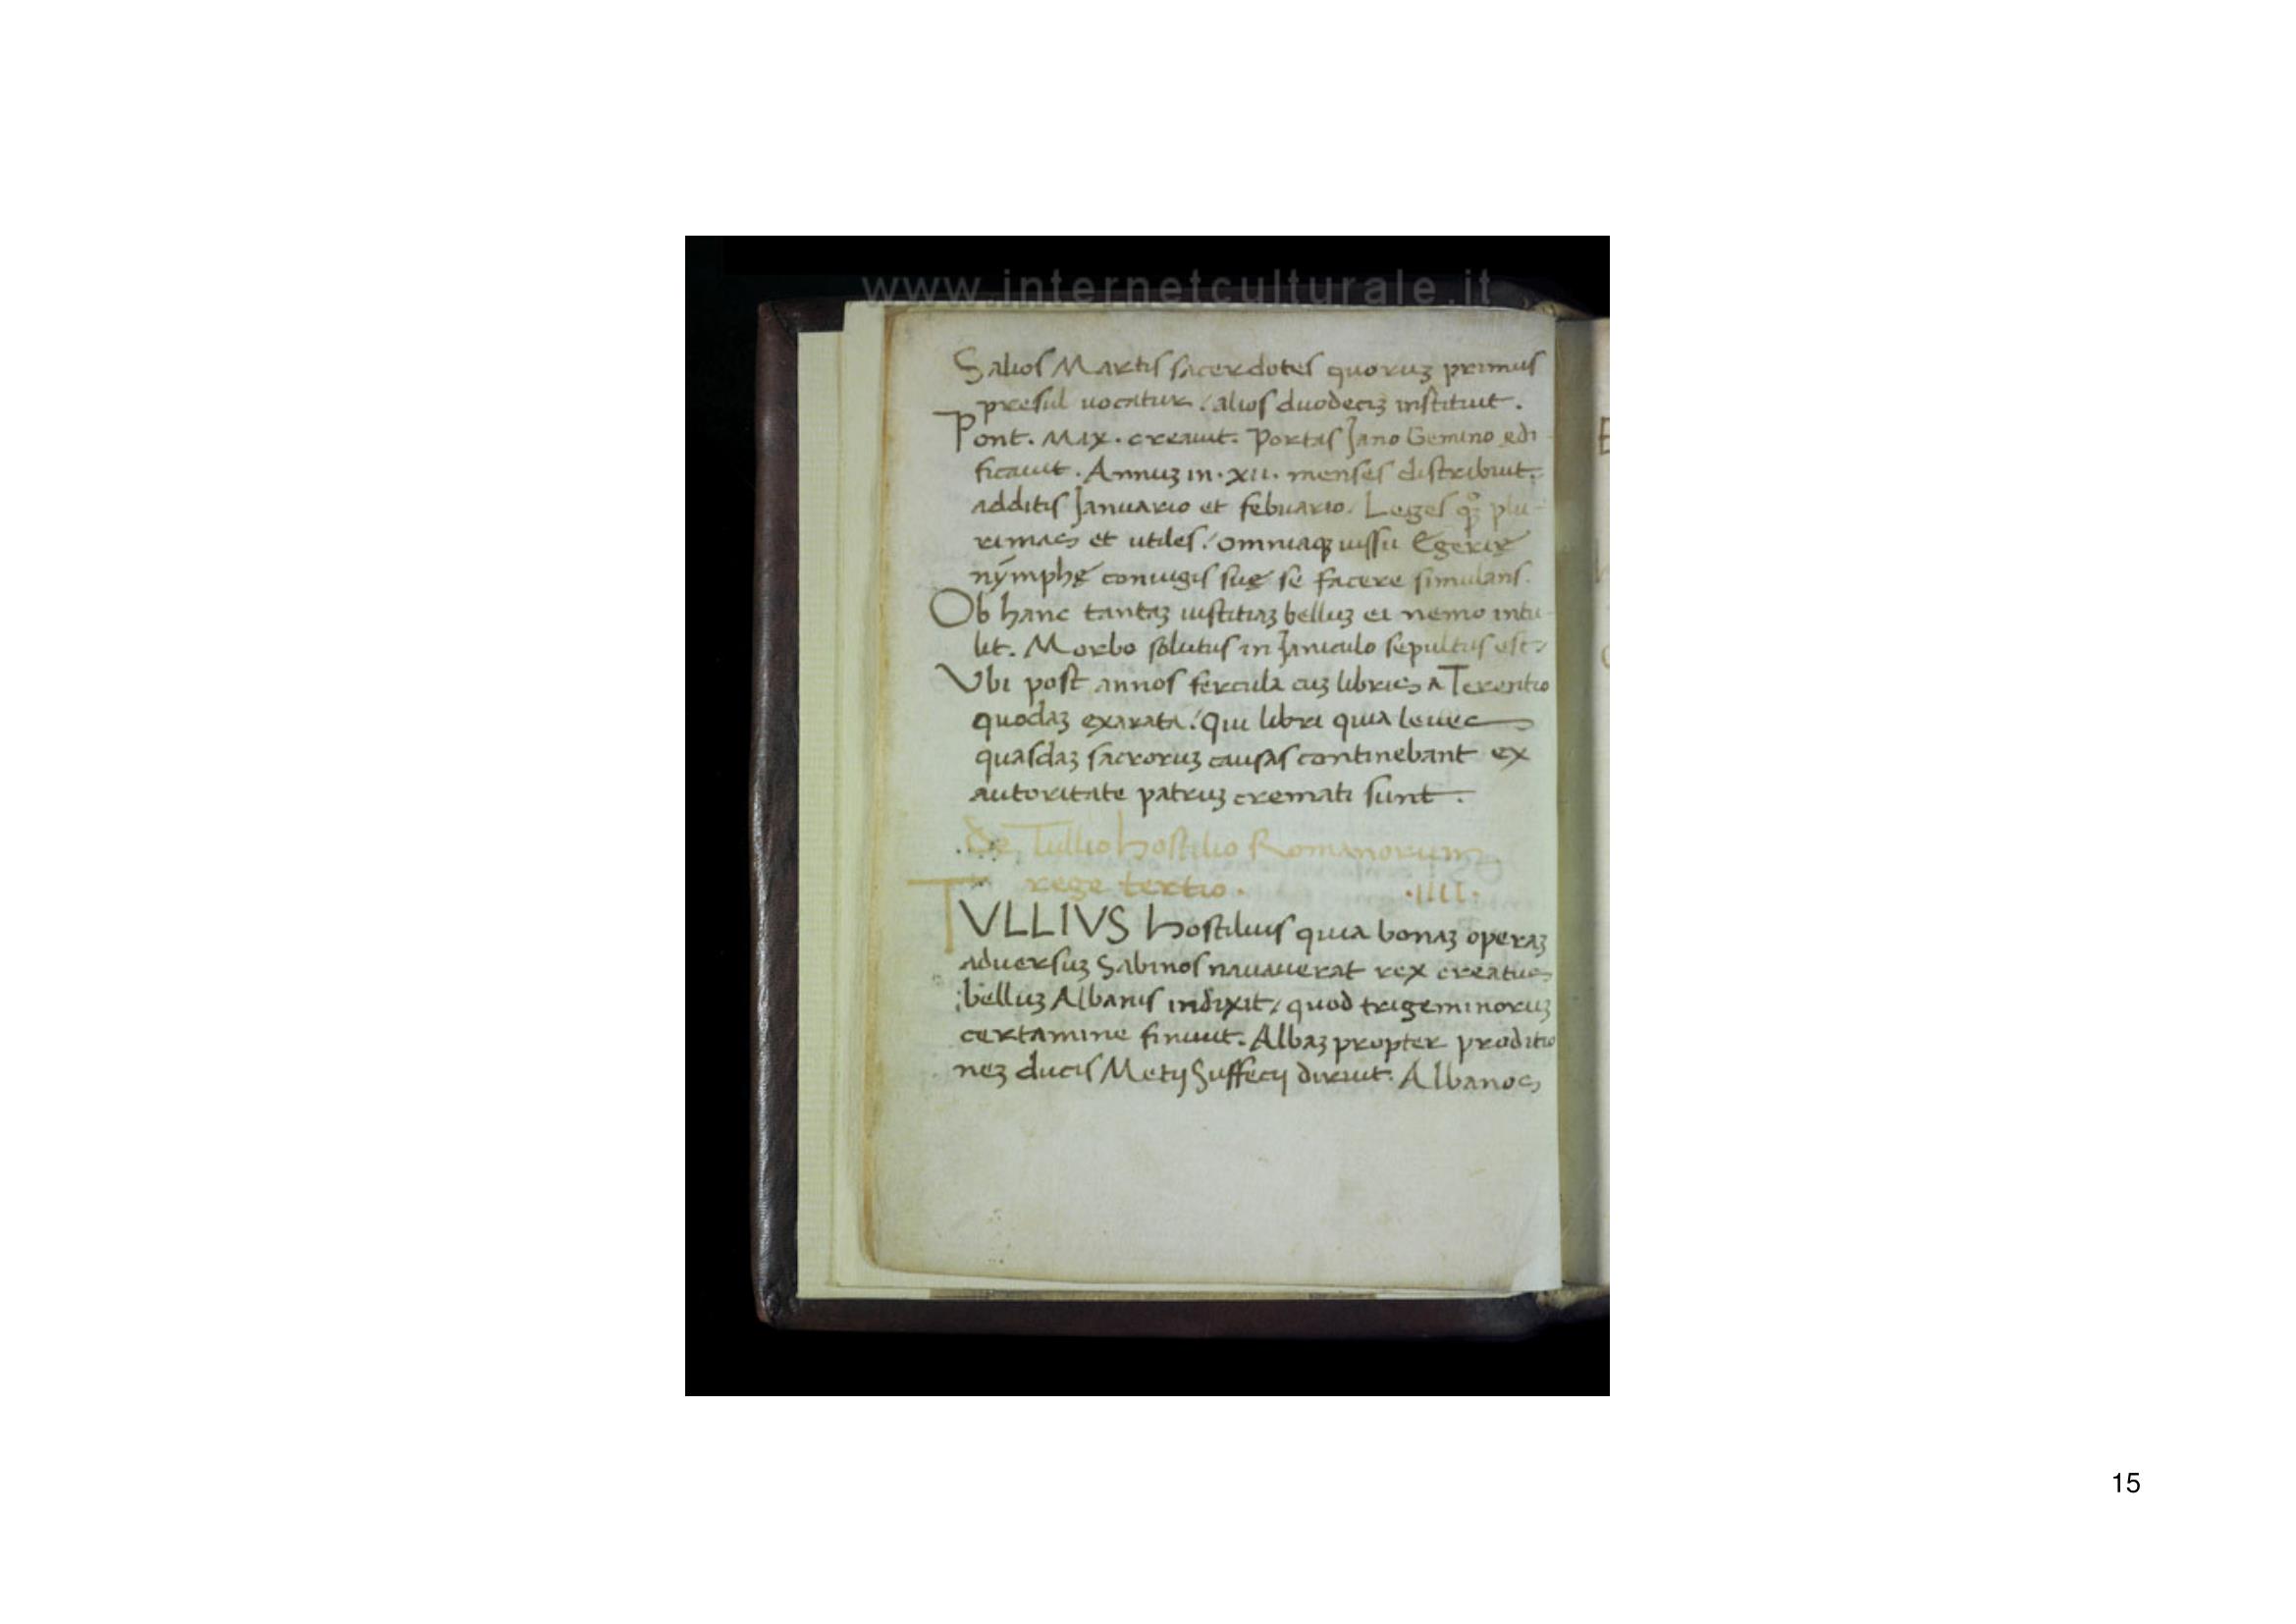 www.internetculturale.it
Salios Martis sacerdotes quoruꝫ primus
presul uocatur / alios duodeciꝫ instituit .
Pont . Max . creauit . Portas Jano Gemino edi
ficauit . Annuꝫ in . xii . menses distribuit .
additis Januario et febuario . Leges qꝫ plu-
rimas et utiles / omniaqꝫ iussu Egerię
nymphę coniugis suę se facere simulans .
Ob hanc tantaꝫ iustitiaꝫ belluꝫ ei nemo intu
lit . Morbo solutus in Janiculo sepultus est .
Vbi post annos fercula cuꝫ libris a Terentio
quodaꝫ exarata / Qui libri quia leues
quasdaꝫ sacroruꝫ causas continebant ex
autoritate patruꝫ cremati sunt .
De Tullio hostilio Romanorum
rege tertio . .IIII.
TVLLIVS hostilius quia bonaꝫ operaꝫ
aduersuꝫ Sabinos nauauerat rex creatus
belluꝫ Albanis indixit / quod trigeminoruꝫ
certamine finiuit . Albaꝫ propter proditio
neꝫ ducis Metij Suffecij diruit . Albanos
15